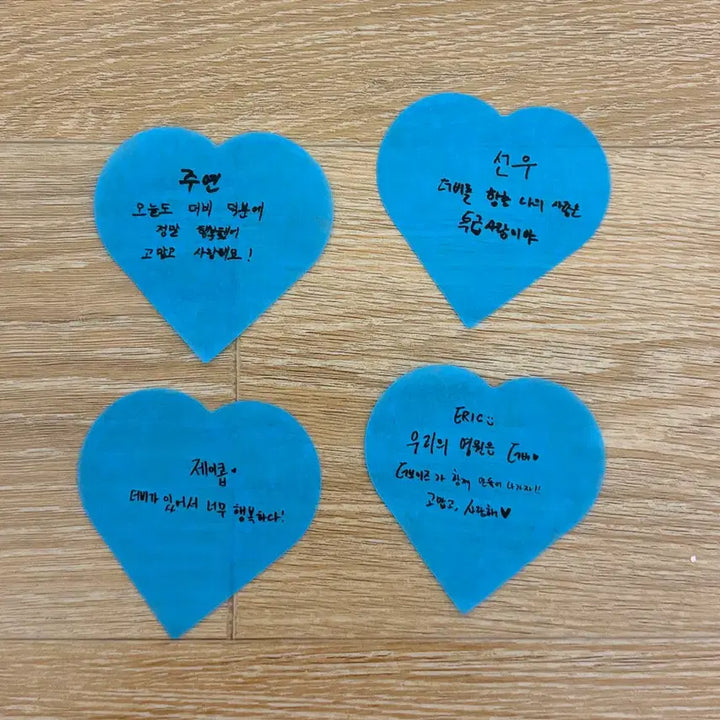 주연
오늘도 더비 덕분에
정말 행복했어
고맙고 사랑해요!
선우
더비를 향한 나의 사랑은
특급사랑이야
제이콥
더비가 있어서 너무 행복하다!
ERIC
우리의 영원은 더비♥
더보이즈가 함께 만들어 나가자!!
고맙고, 사랑해♥